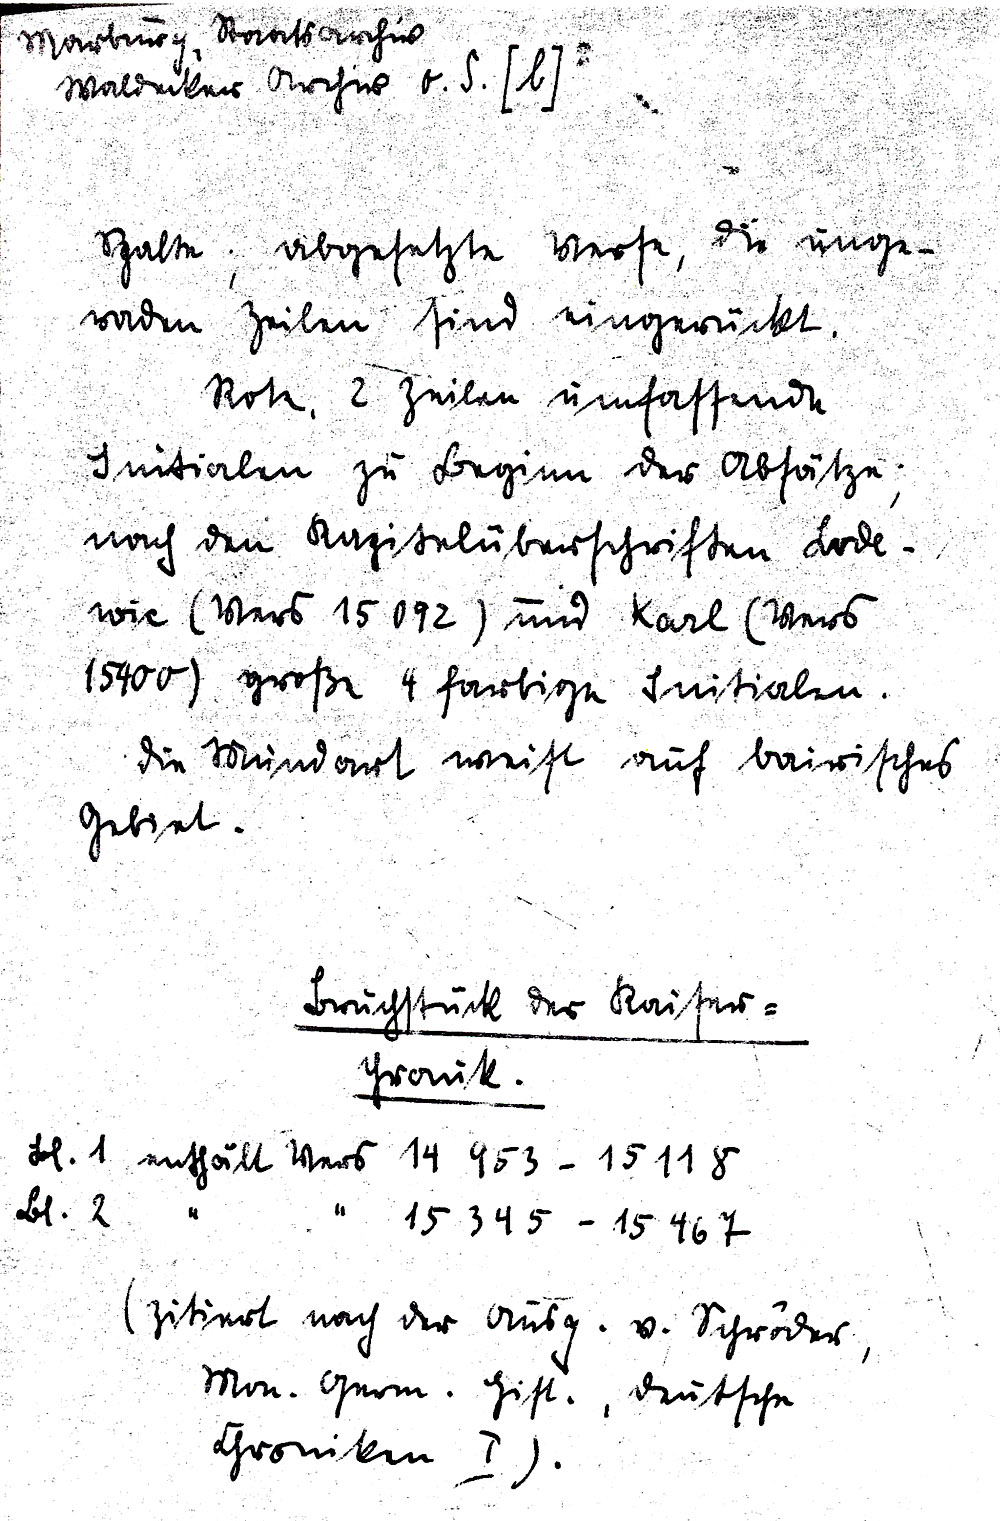 Marburg, Staatsarchiv
Waldecker Archiv o. S. [b]
Spalte; abgesetzte Verse, die unge-
raden Zeilen sind eingerückt.
Rote, 2 Zeilen umfassende
Initialen zu Beginn der Absätze;
nach den Kapitelüberschriften Lode-
wic (Vers 15 092) und Karl (Vers
15400) große 4 farbige Initialen.
Die Mundart weist auf bairisches
Gebiet.
Bruchstück der Kaiser=
chronik.
Bl. 1 enthält Vers 14 953 - 15 118
Bl. 2 " " 15 345 - 15 467
(Zitiert nach der Ausg. v. Schröder,
Mon. Germ. Hist., Deutsche
Chroniken I).